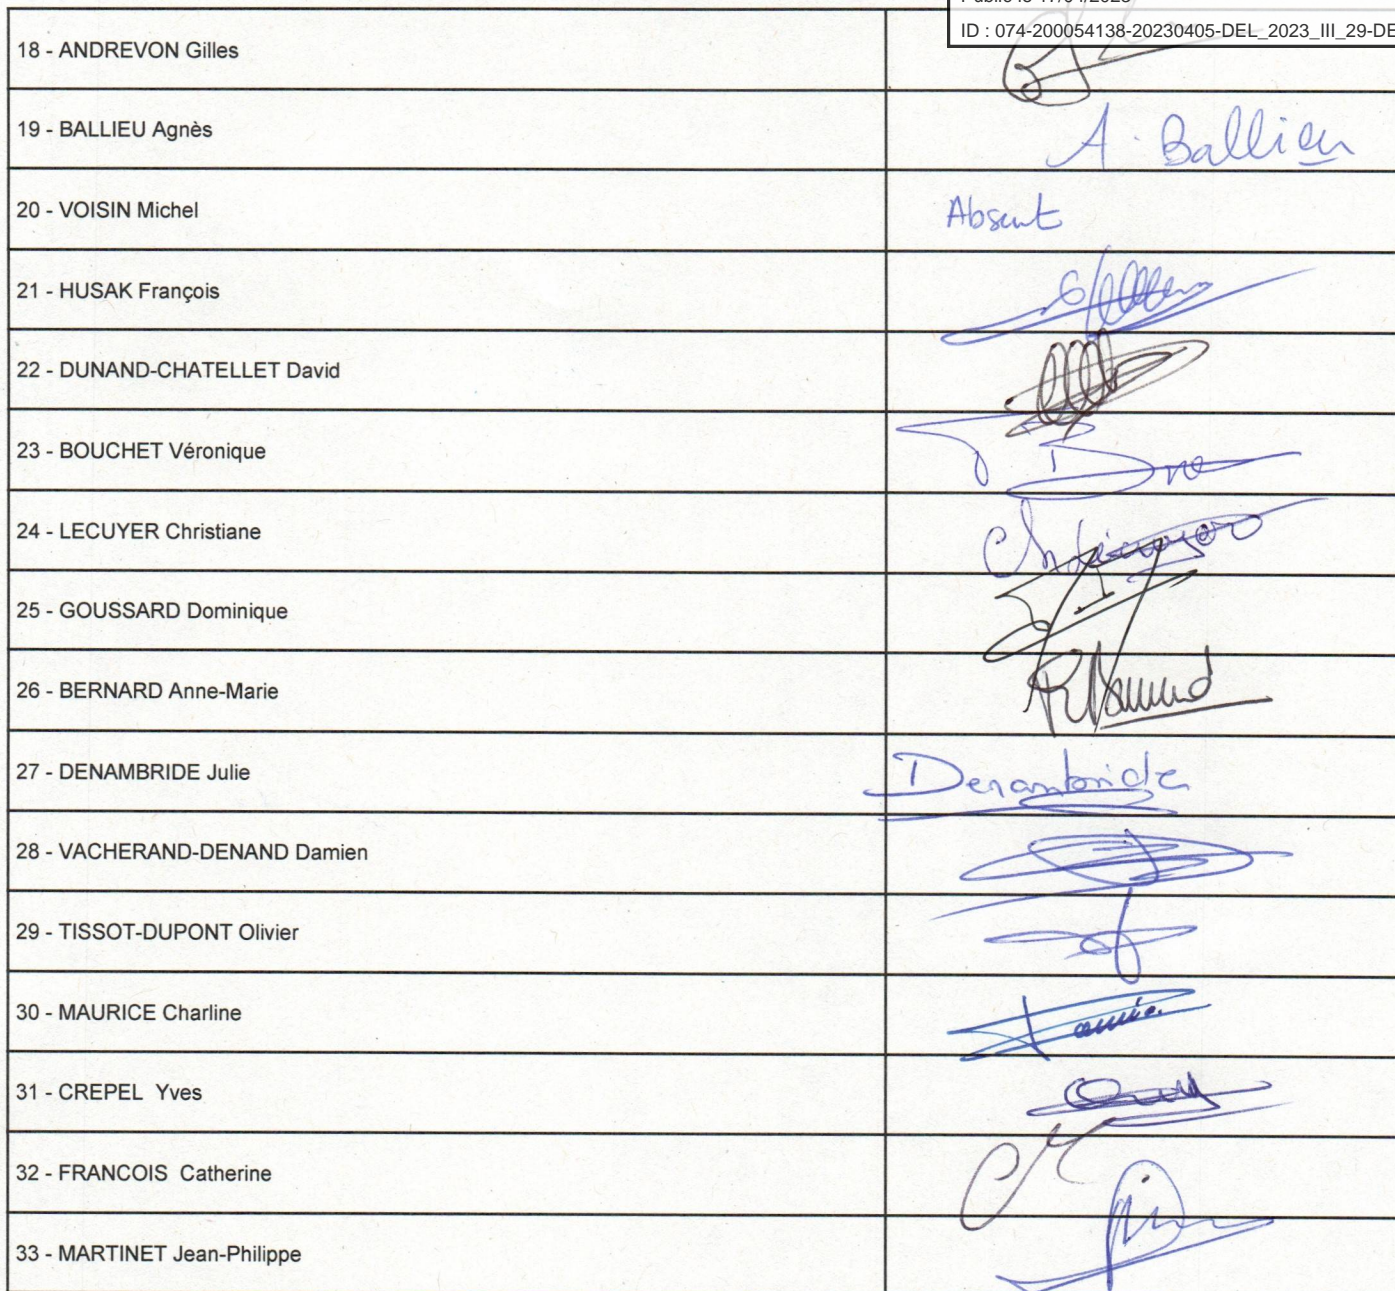 ID : 074-200054138-20230405-DEL_2023_III_29-DE
18 - ANDREVON Gilles
19 - BALLIEU Agnès
A. Ballieu
20 - VOISIN Michel
Absent
21 - HUSAK François
22 - DUNAND-CHATELLET David
23 - BOUCHET Véronique
24 - LECUYER Christiane
25 - GOUSSARD Dominique
26 - BERNARD Anne-Marie
27 - DENAMBRIDE Julie
Denambride
28 - VACHERAND-DENAND Damien
29 - TISSOT-DUPONT Olivier
30 - MAURICE Charline
31 - CREPEL Yves
32 - FRANCOIS Catherine
33 - MARTINET Jean-Philippe